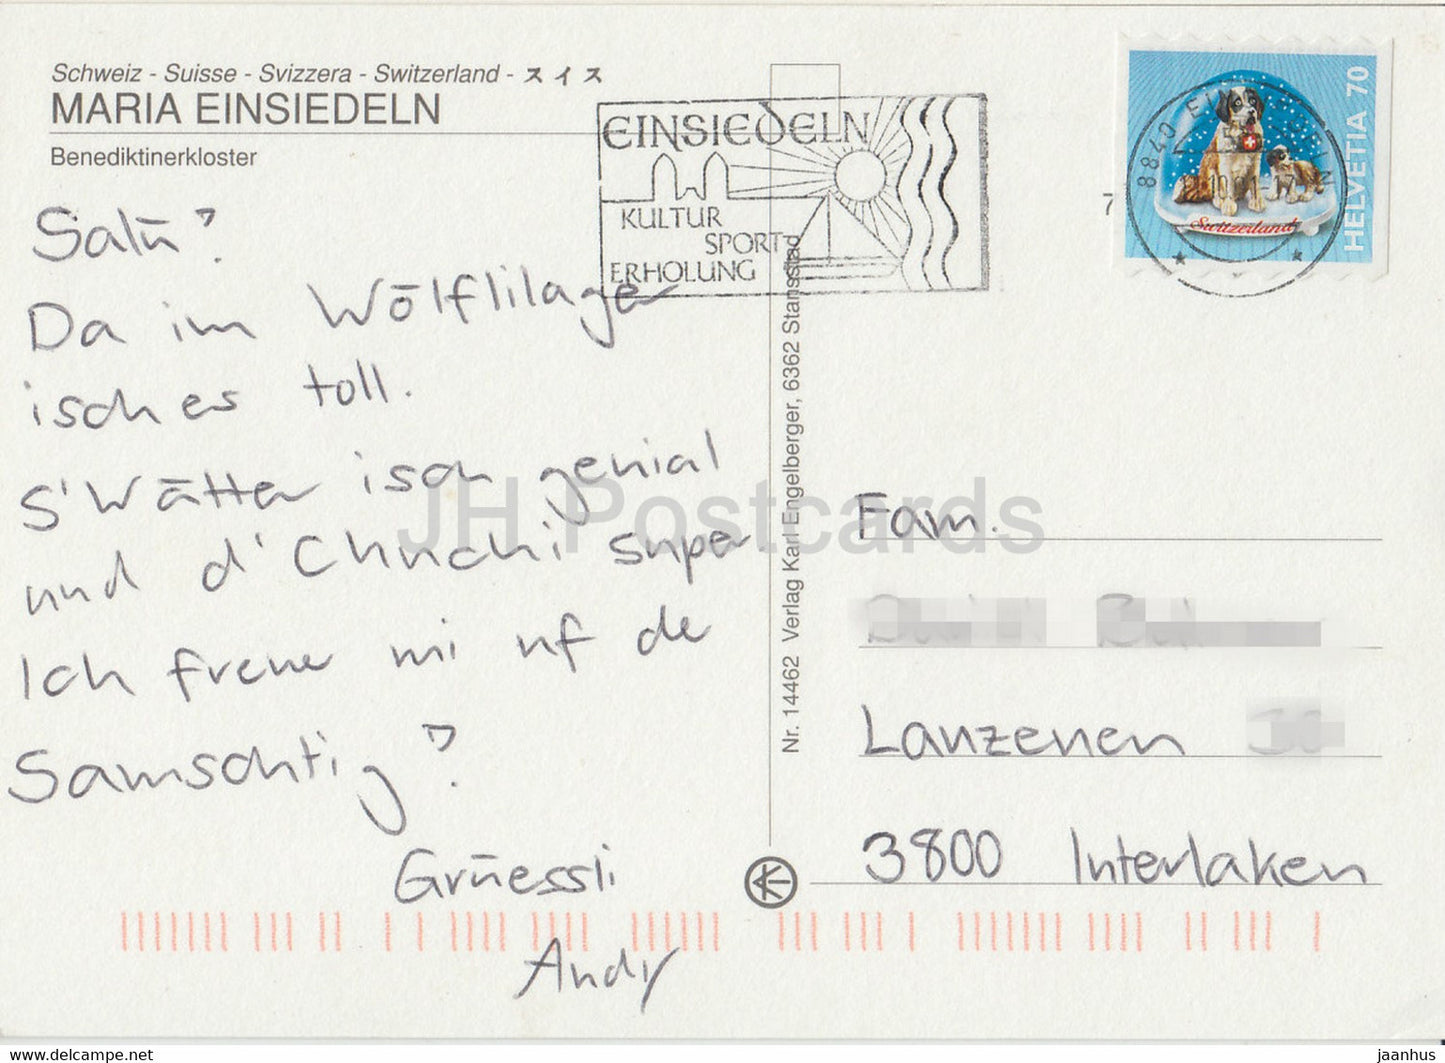 Schweiz - Suisse - Svizzera - Switzerland - スイス
MARIA EINSIEDELN
Benediktinerkloster
Salü!
Da im Wölflilager
isch es toll.
S'Wätter isch genial
und d'Chuchi super
Ich freue mi uf de
Samschtig!
Grüessli
Andy
EINSIEDELN
KULTUR
SPORT
ERHOLUNG
Nr. 14462 Verlag Karl Engelberger, 6362 Stansstad
7
8840
Switzerland
HELVETIA 70
Fam.
Lanzenen
3800 Interlaken
JH Postcards
https://www.jh-postcards.com
jaanhus